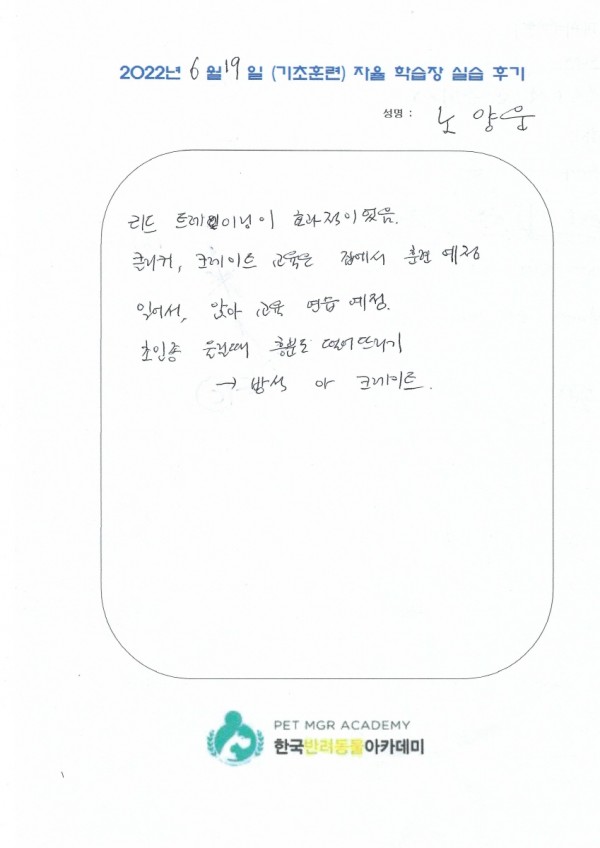 2022년 6월 19일 (기초훈련) 자율 학습장 실습 후기
성명 : 노양운
리드 트레이닝이 효과적이었음.
클리커, 크레이트 교육은 집에서 훈련 예정
일어서, 앉아 교육 연습 예정.
초인종 울릴때 흥분도 떨어뜨리기
→ 방석 or 크레이트.
PET MGR ACADEMY
한국반려동물아카데미